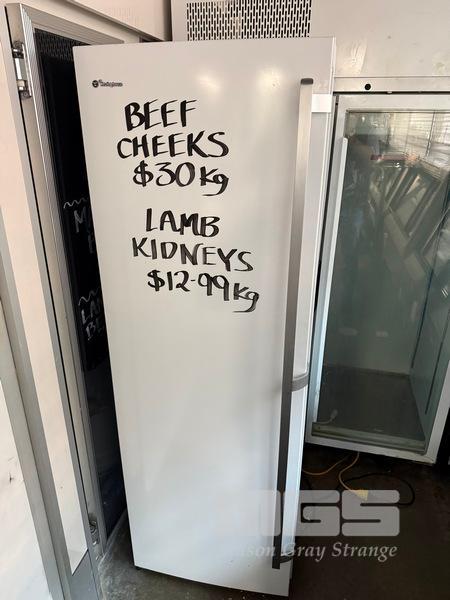 Westinghouse
BEEF
CHEEKS
$30 kg
LAMB
KIDNEYS
$12-99 kg
MGS
Mason Gray Strange